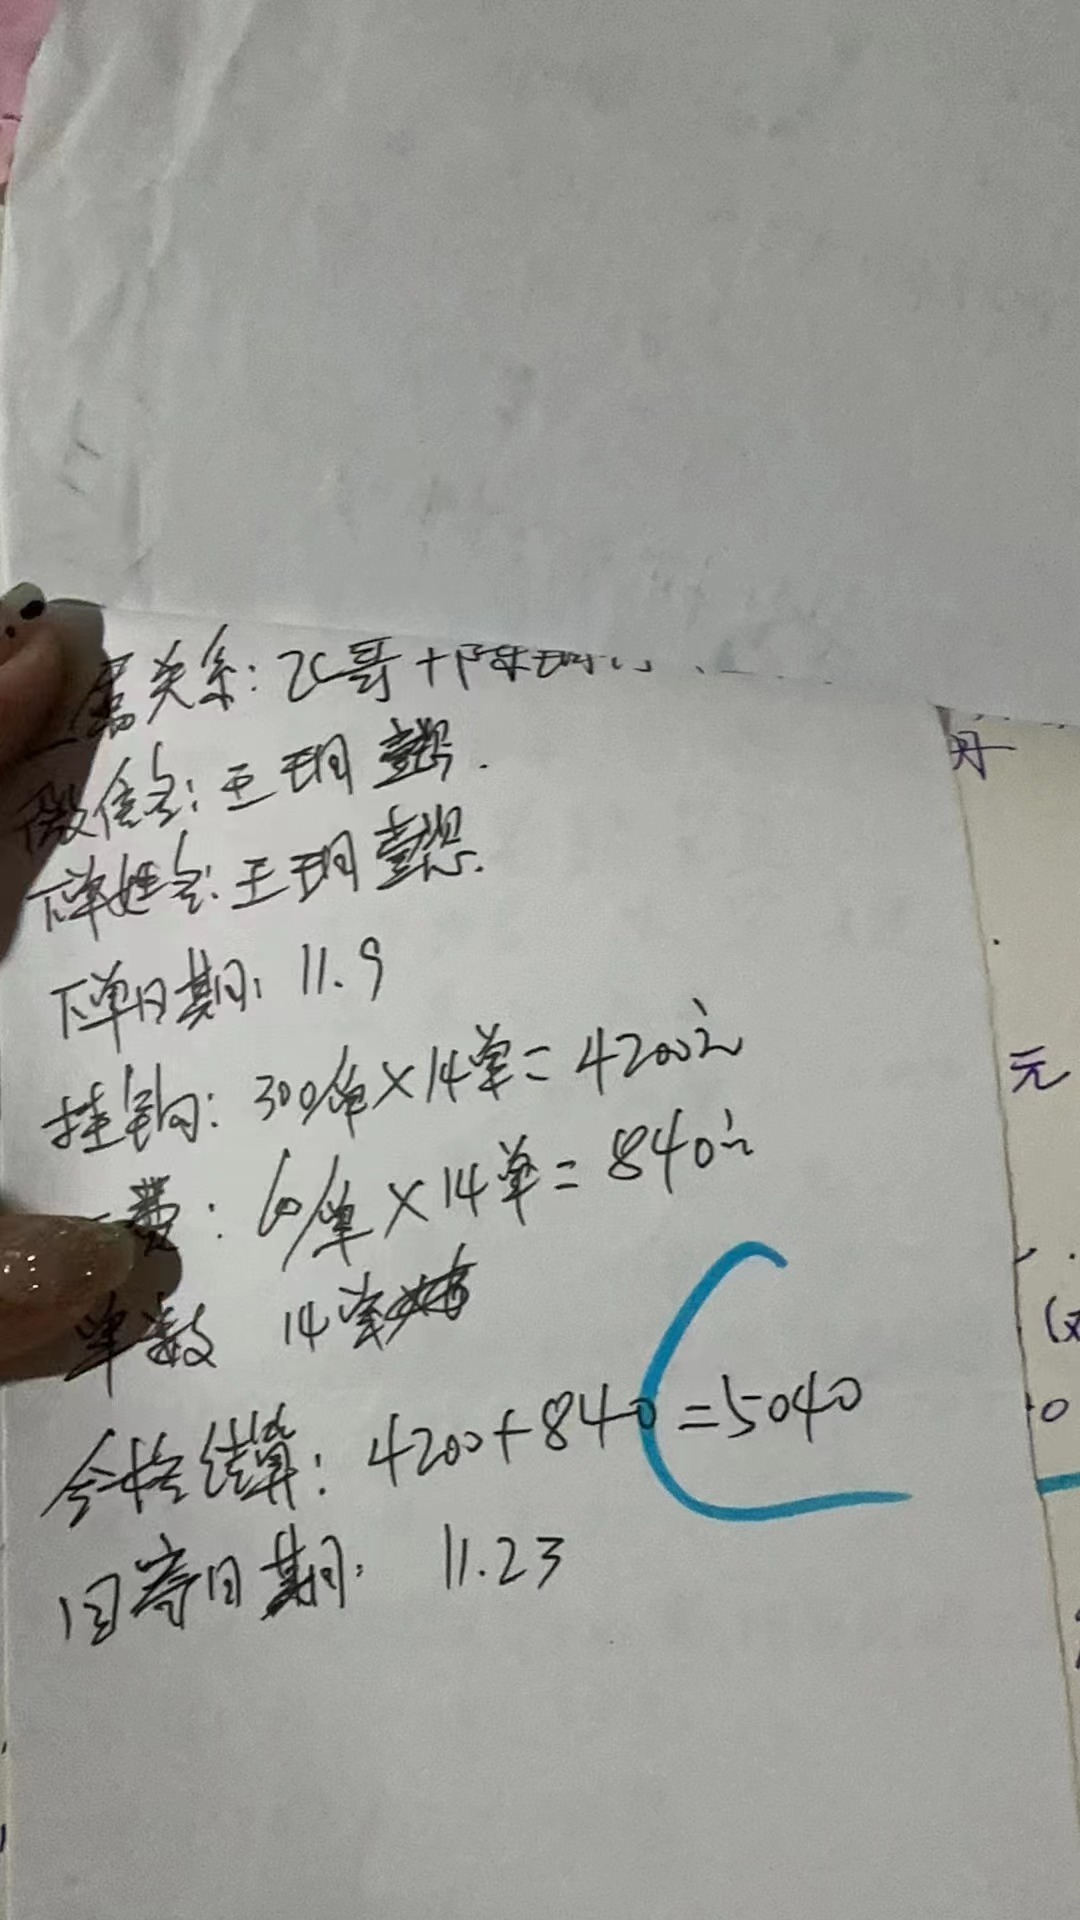 属关系: 飞哥+陈玥
微信名: 王玥懿.
下单姓名: 王玥懿.
下单日期: 11.9
挂钩: 300/单×14单=4200元
费: 60/单×14单=840元
单数 14单
合格结算: 4200+840=5040
回寄日期: 11.23
丹
元
0